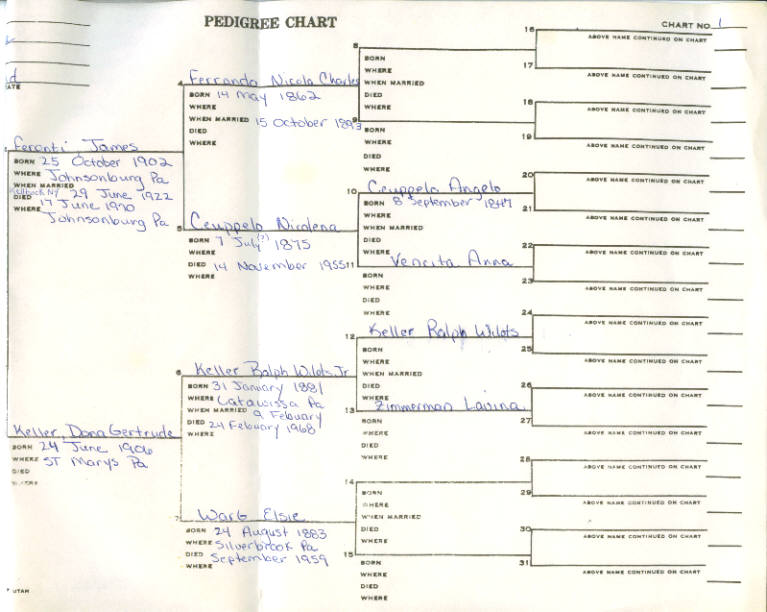 PEDIGREE CHART
CHART NO. 1
16
ABOVE NAME CONTINUED ON CHART
17
ABOVE NAME CONTINUED ON CHART
8
BORN
WHERE
WHEN MARRIED
DIED
WHERE
4 Ferrando Nicola Charles
BORN 14 May 1862
WHERE
WHEN MARRIED 15 October 1893
DIED
WHERE
18
ABOVE NAME CONTINUED ON CHART
19
ABOVE NAME CONTINUED ON CHART
9
BORN
WHERE
DIED
WHERE
Feronti James
BORN 25 October 1902
WHERE Johnsonburg Pa
WHEN MARRIED
29 June 1922
DIED 17 June 1970
WHERE Johnsonburg Pa
20
ABOVE NAME CONTINUED ON CHART
21
ABOVE NAME CONTINUED ON CHART
10 Ceuppelo Angelo
BORN 8 September 1847
WHERE
WHEN MARRIED
DIED
WHERE
5 Ceuppelo Nicolena
BORN 7 July (?) 1875
WHERE
DIED 14 November 1955
WHERE
22
ABOVE NAME CONTINUED ON CHART
23
ABOVE NAME CONTINUED ON CHART
11 Vencita Anna
BORN
WHERE
DIED
WHERE
24
ABOVE NAME CONTINUED ON CHART
25
ABOVE NAME CONTINUED ON CHART
12 Keller Ralph Wilots
BORN
WHERE
WHEN MARRIED
DIED
WHERE
6 Keller Ralph Wilots, Jr
BORN 31 January 1881
WHERE Catawissa Pa
WHEN MARRIED 9 Febuary
DIED 24 Febuary 1968
WHERE
26
ABOVE NAME CONTINUED ON CHART
27
ABOVE NAME CONTINUED ON CHART
13 Zimmerman Lavina
BORN
WHERE
DIED
WHERE
Keller, Dona Gertrude
BORN 24 June 1906
WHERE ST Marys Pa
DIED
WHERE
28
ABOVE NAME CONTINUED ON CHART
29
ABOVE NAME CONTINUED ON CHART
14
BORN
WHERE
WHEN MARRIED
DIED
WHERE
7 Warg Elsie
BORN 24 August 1883
WHERE Silverbrook Pa
DIED September 1959
WHERE
30
ABOVE NAME CONTINUED ON CHART
31
ABOVE NAME CONTINUED ON CHART
15
BORN
WHERE
DIED
WHERE
UTAH